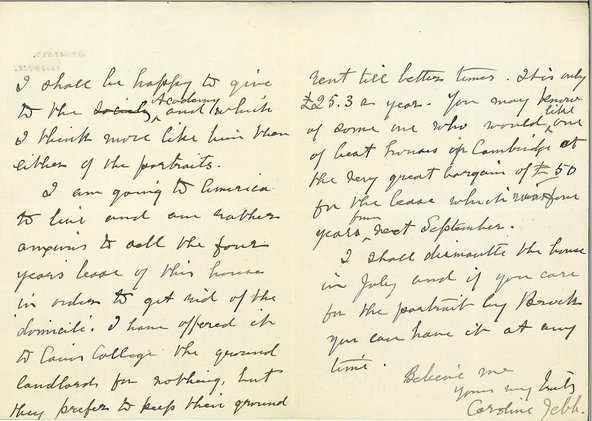 I shall be happy to give
to the Society Academy and which
I think more like him than
either of the portraits.
I am going to America
to live and am rather
anxious to sell the four
years lease of this house
in order to get rid of the
'domicile'. I have offered it
to Caius College the ground
landlords for nothing, but
they prefer to keep their ground
rent till better times. It is only
£25.3 a year. You may know
of some one who would like one
of best houses in Cambridge at
the very great bargain of £50
for the lease which four
years from next September.
I shall dismantle the house
in July and if you care
for the portrait by Brock
you can have it at any
time.
Believe me
yours very truly
Caroline Jebb.